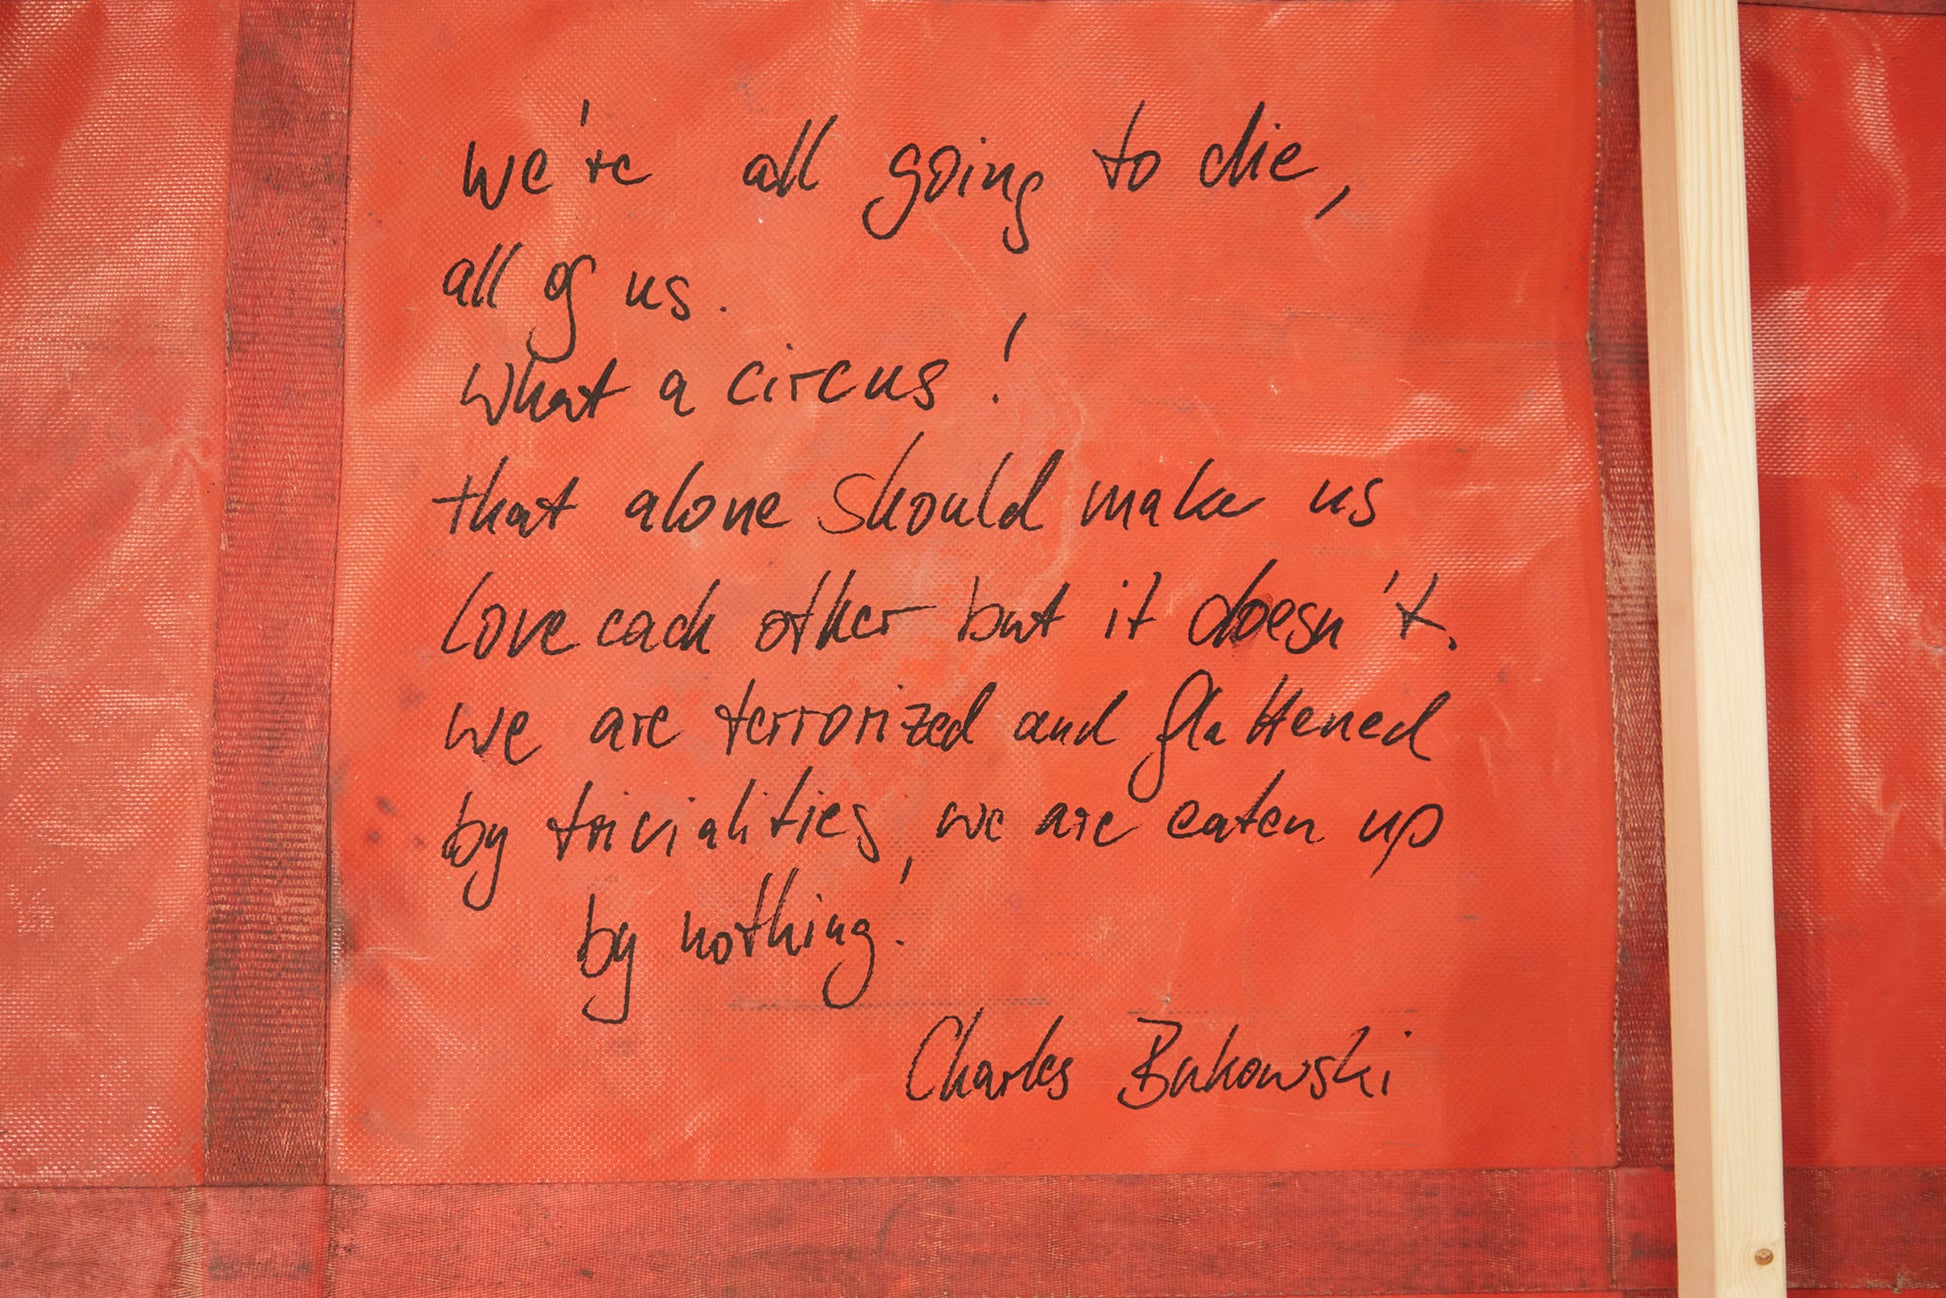 we're all going to die,
all of us.
what a circus!
that alone should make us
love each other but it doesn't.
we are terrorized and flattened
by trivialities, we are eaten up
by nothing!
Charles Bukowski